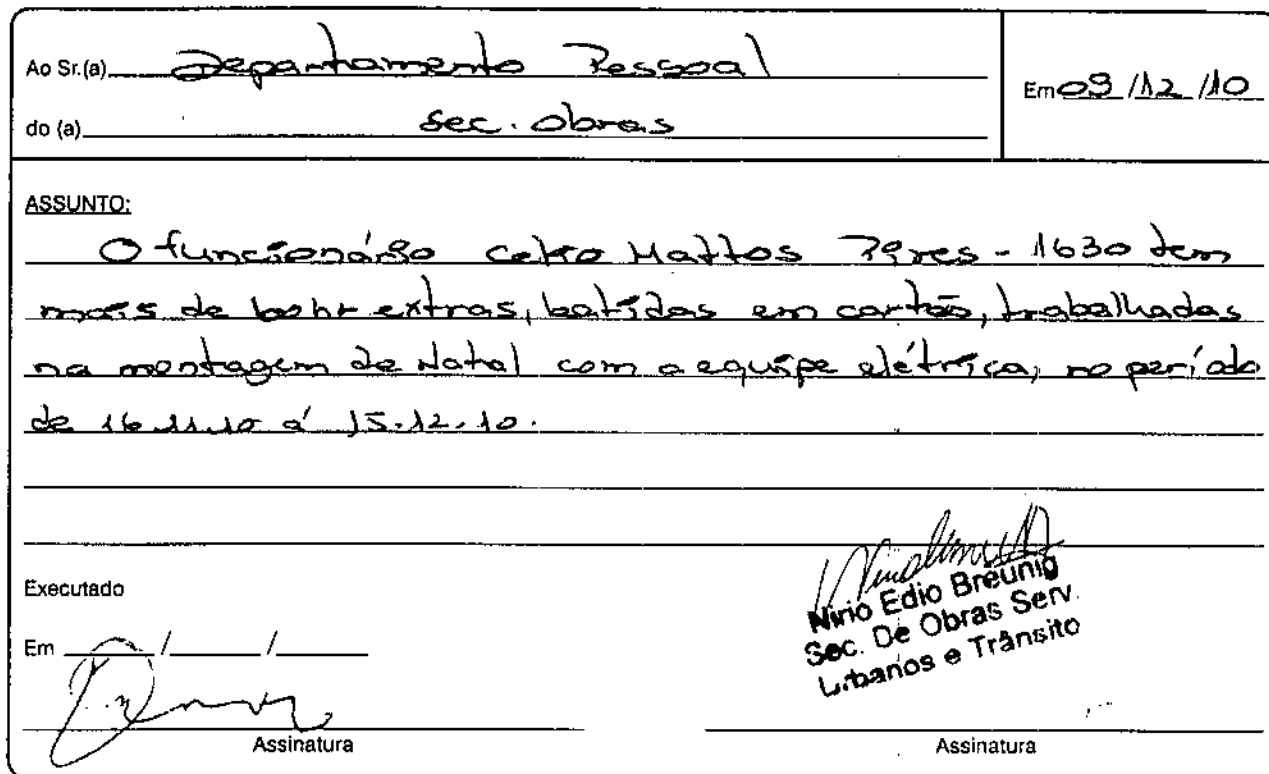 Ao Sr.(a) Departamento Pessoal
Em 09/12/10
do (a) Sec. Obras
ASSUNTO:
O funcionário Celso Mattos Pires - 1630 tem
mais de 60hr extras, batidas em cartão, trabalhadas
na montagem de Natal com a equipe elétrica, no período
de 16.11.10 á 15.12.10.
Executado
Em / /
Nirio Edio Breunig
Sec. De Obras Serv.
Urbanos e Trânsito
Assinatura
Assinatura